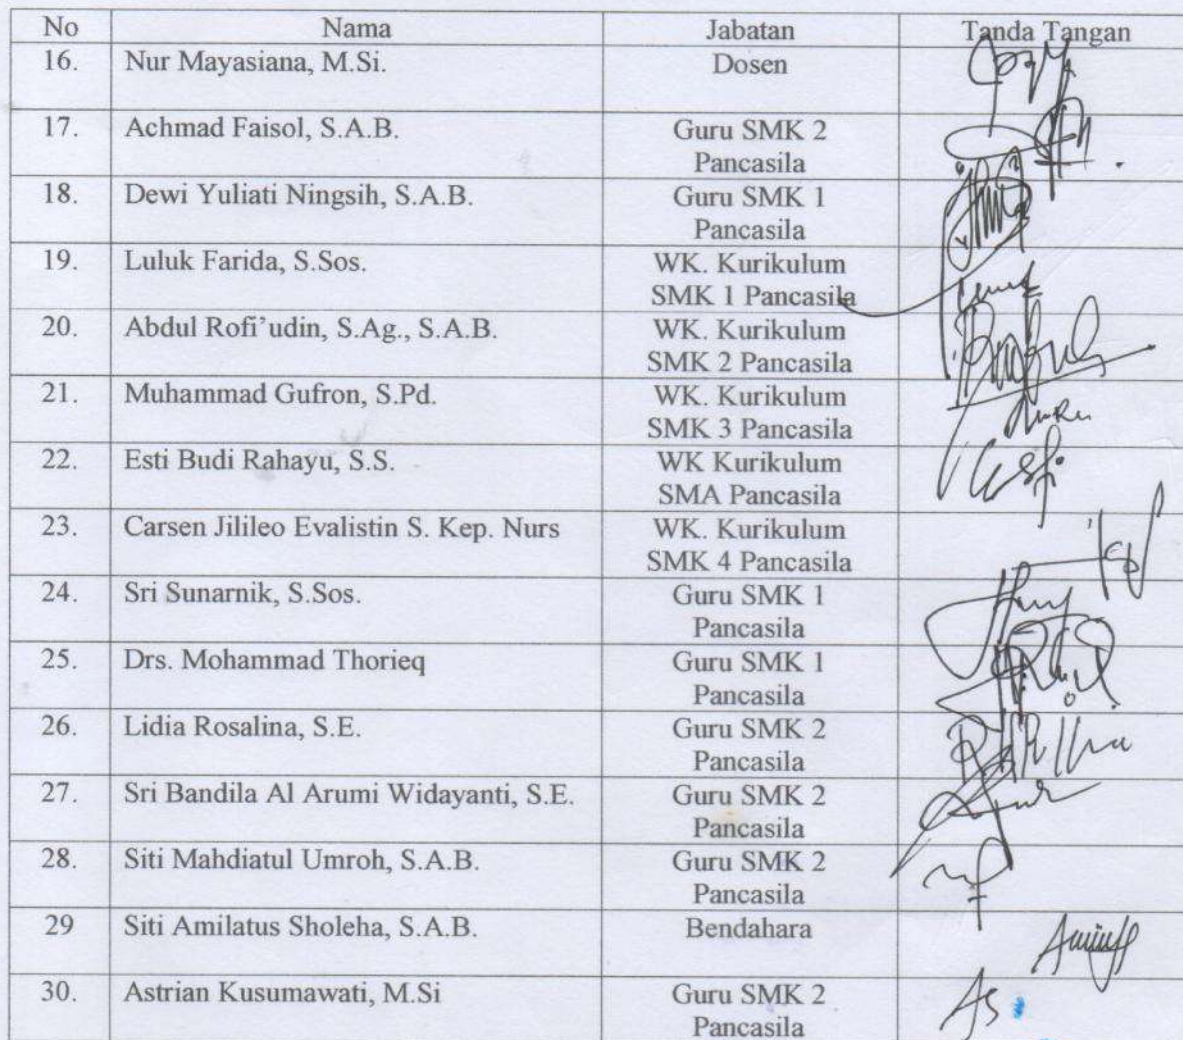 No Nama Jabatan Tanda Tangan
16. Nur Mayasiana, M.Si. Dosen
17. Achmad Faisol, S.A.B. Guru SMK 2
Pancasila
18. Dewi Yuliati Ningsih, S.A.B. Guru SMK 1
Pancasila
19. Luluk Farida, S.Sos. WK. Kurikulum
SMK 1 Pancasila
20. Abdul Rofi'udin, S.Ag., S.A.B. WK. Kurikulum
SMK 2 Pancasila
21. Muhammad Gufron, S.Pd. WK. Kurikulum
SMK 3 Pancasila
22. Esti Budi Rahayu, S.S. WK Kurikulum
SMA Pancasila
23. Carsen Jilileo Evalistin S. Kep. Nurs WK. Kurikulum
SMK 4 Pancasila
24. Sri Sunarnik, S.Sos. Guru SMK 1
Pancasila
25. Drs. Mohammad Thorieq Guru SMK 1
Pancasila
26. Lidia Rosalina, S.E. Guru SMK 2
Pancasila
27. Sri Bandila Al Arumi Widayanti, S.E. Guru SMK 2
Pancasila
28. Siti Mahdiatul Umroh, S.A.B. Guru SMK 2
Pancasila
29 Siti Amilatus Sholeha, S.A.B. Bendahara
30. Astrian Kusumawati, M.Si Guru SMK 2
Pancasila